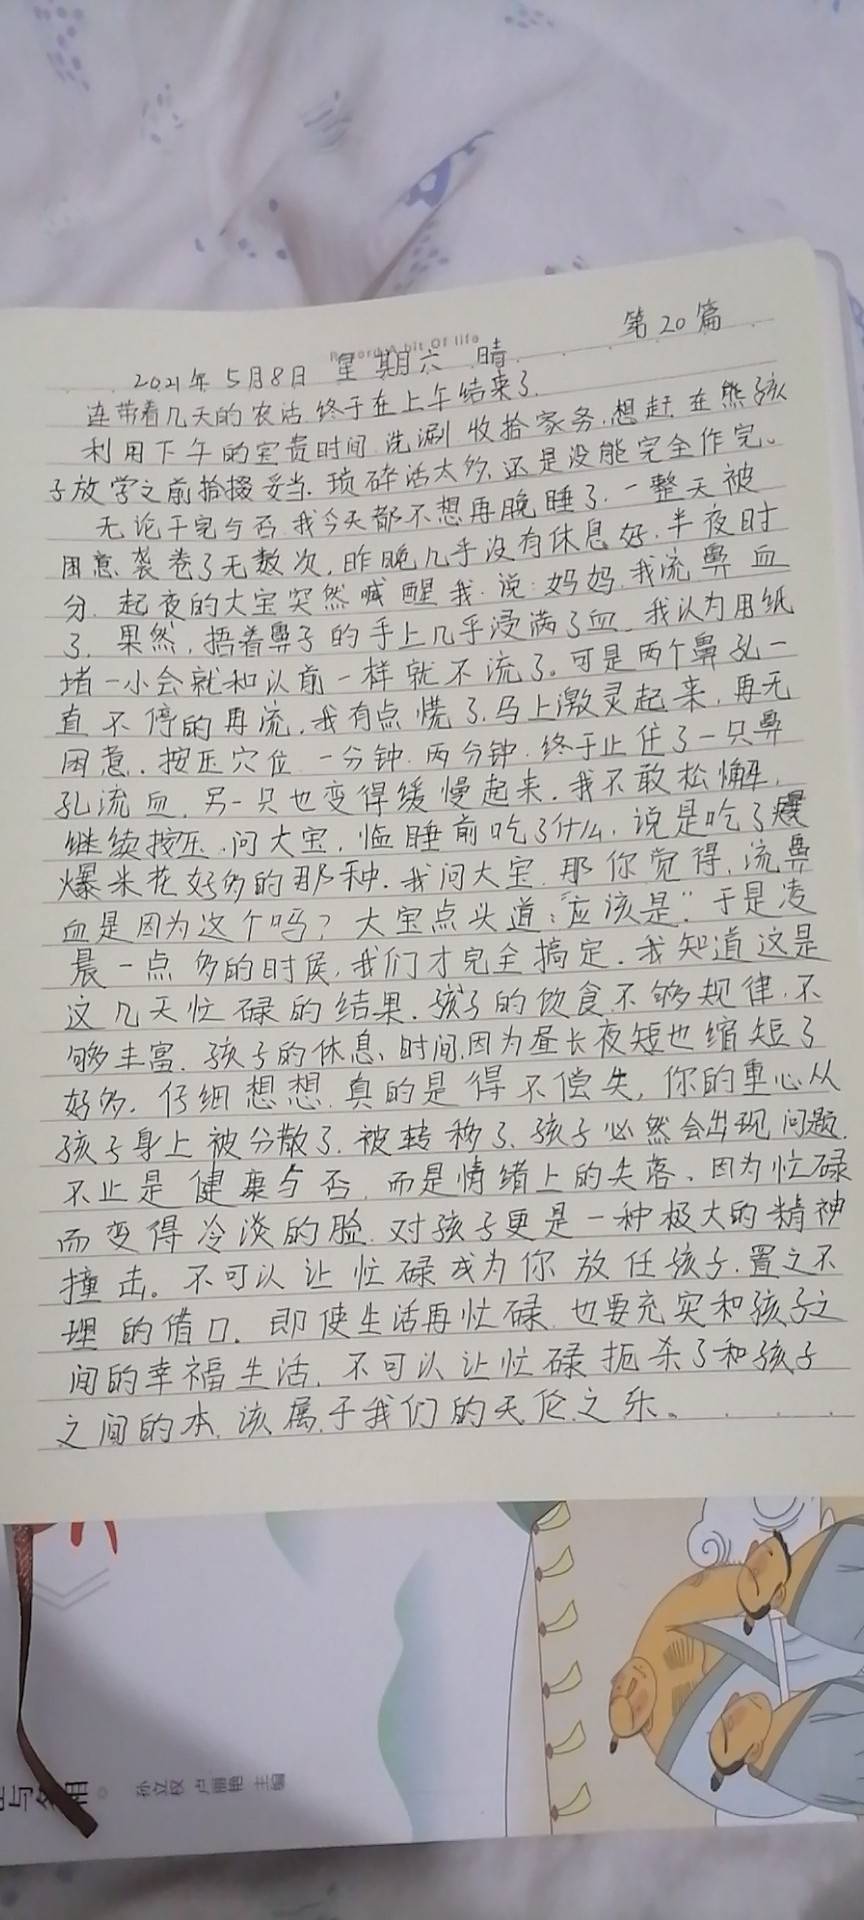 第20篇
Record A bit Of life
2021年5月8日 星期六 晴
连带着几天的农活终于在上午结束了.
利用下午的宝贵时间洗涮收拾家务.想赶在熊孩
子放学之前拾掇妥当.琐碎活太多,还是没能完全作完。
无论干完与否.我今天都不想再晚睡了.一整天被
困意袭卷了无数次,昨晚几乎没有休息好.半夜时
分.起夜的大宝突然喊醒我.说:妈妈.我流鼻血
了.果然,捂着鼻子的手上几乎浸满了血.我认为用纸
堵一小会就和以前一样就不流了。可是两个鼻孔一
直不停的再流,我有点慌了.马上激灵起来,再无
困意.按压穴位.一分钟.两分钟.终于止住了一只鼻
孔流血.另一只也变得缓慢起来.我不敢松懈,
继续按压.问大宝,临睡前吃了什么.说是吃了
爆米花好多的那种.我问大宝.那你觉得,流鼻
血是因为这个吗?大宝点头道:“应该是”.于是凌
晨一点多的时侯,我们才完全搞定.我知道这是
这几天忙碌的结果.孩子的饮食不够规律.不
够丰富.孩子的休息、时间,因为昼长夜短也缩短了
好多.仔细想想.真的是得不偿失,你的重心从
孩子身上被分散了.被转移了.孩子必然会出现问题.
不止是健康与否.而是情绪上的失落、因为忙碌
而变得冷淡的脸.对孩子更是一种极大的精神
撞击。不可以让忙碌成为你放任孩子.置之不
理的借口.即使生活再忙碌.也要充实和孩子之
间的幸福生活.不可以让忙碌扼杀了和孩子
之间的本该属于我们的天伦之乐。
主编